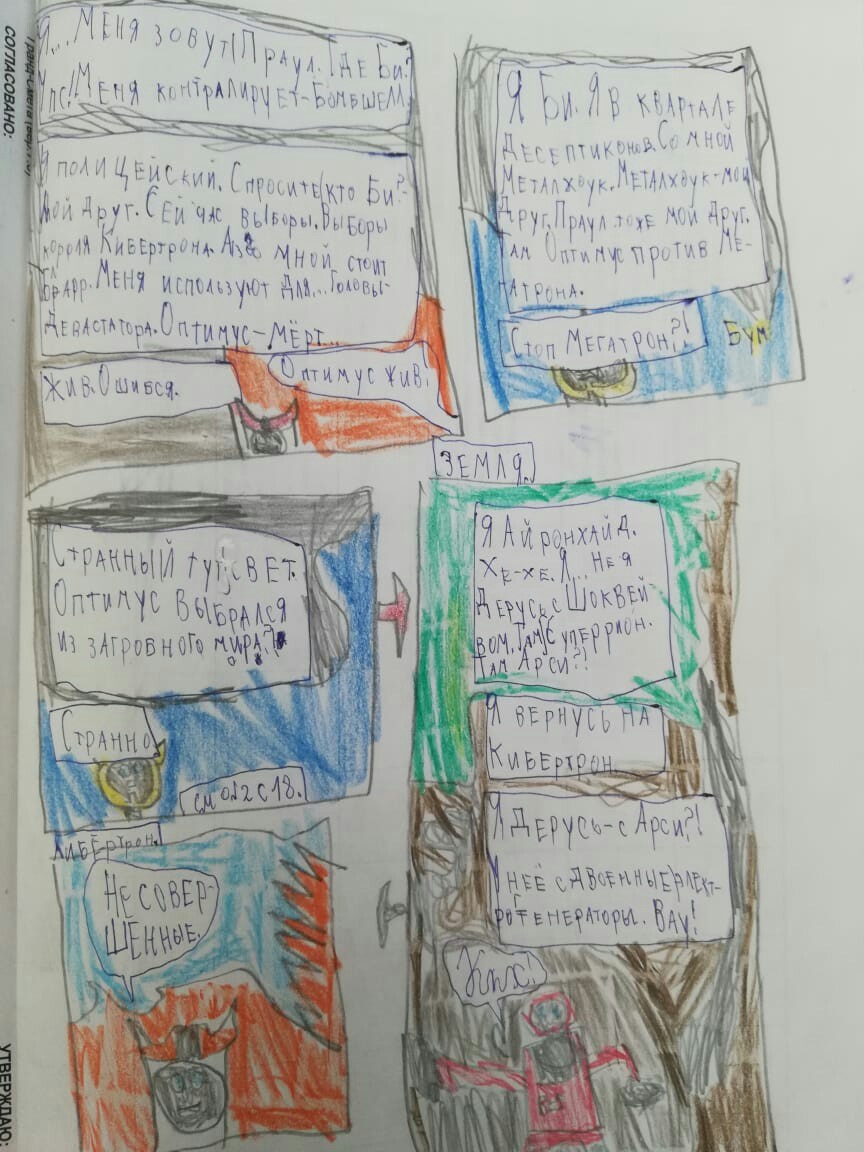 Я... Меня зовут Праул. Где Би?
Упс! Меня контралирует-Бомбшелл
Я полицейский. Спросите кто Би?-
мой друг. Сейчас выборы. Выборы
короля Кибертрона. А мной стоит
Меня используют для... Головы-
Девастатора. Оптимус-мёрт...
Жив. Ошибся.
Оптимус жив!
Я Би. Я в квартале
Десептиконов. Со мной
Металхоук. Металхоук-мой
Друг. Праул тоже мой друг.
Там Оптимус против Ме-
гатрона.
Стоп Мегатрон?!
Бум
Странный тут свет.
Оптимус выбрался
из загровного мира?
Странно.
см о.2 с 18.
Земля.
Я Айронхайд.
Хе-хе. Я... Не я
Дерусь с Шоквей
вом. Там Суперрион.
Там Арси?!
Я вернусь на
Кибертрон
Я Дерусь-с Арси?!
У неё сдвоенные элект-
рогенераторы. Вау!
Кибертрон.
Несовер-
шенные.
Кых!
СОГЛАСОВАНО:
УТВЕРЖДАЮ: